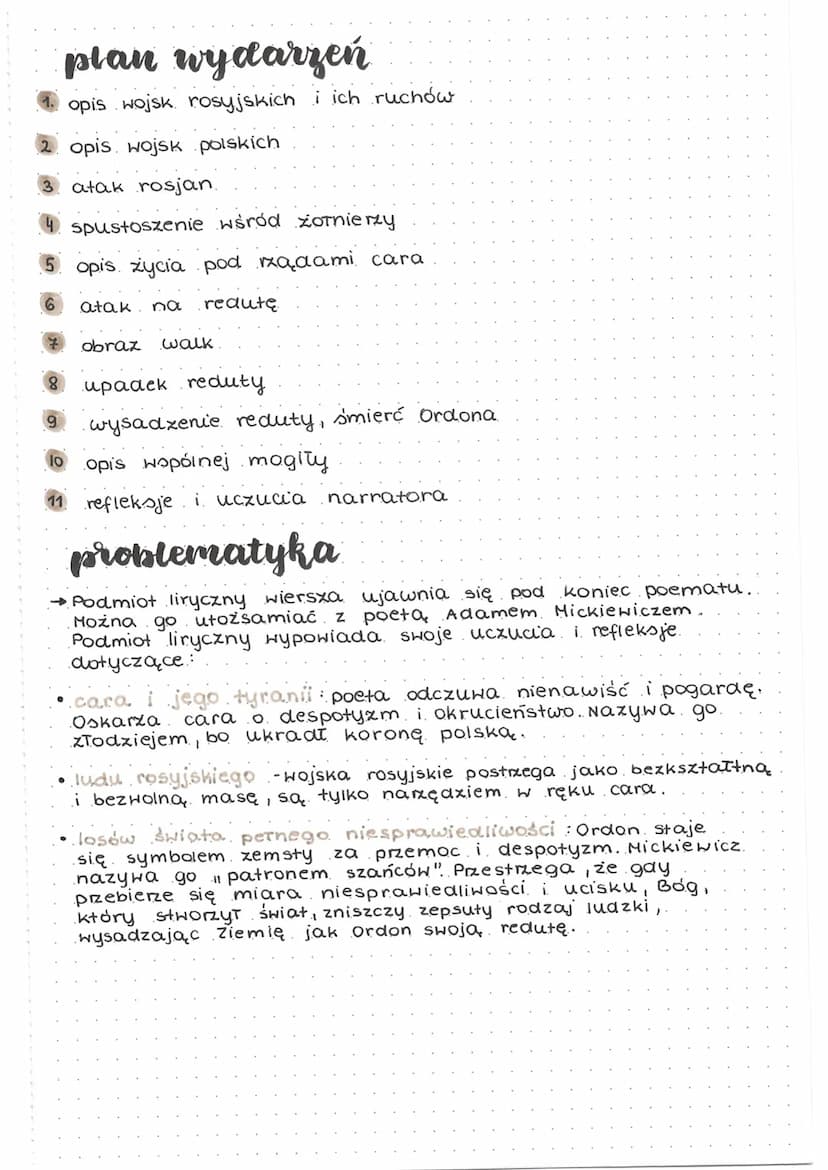 plan wydarzeń
1. opis wojsk rosyjskich i ich ruchów
2 opis wojsk polskich
3 atak rosjan
4 spustoszenie wśród żołnierzy
5 opis życia pod rządami cara
6 atak na redutę
7 obraz walk
8 upadek reduty
9 wysadzenie reduty, śmierć Ordona
10 opis wspólnej mogiły
11 refleksje i uczucia narratora
problematyka
→ Podmiot liryczny wiersza ujawnia się pod koniec poematu.
Można go utożsamiać z poetą Adamem Mickiewiczem.
Podmiot liryczny wypowiada swoje uczucia i refleksje
dotyczące:
• cara i jego tyranii: poeta odczuwa nienawiść i pogardę.
Oskarża cara o despotyzm i okrucieństwo. Nazywa go
złodziejem, bo ukradł koronę polską.
• ludu rosyjskiego - wojska rosyjskie postrzega jako bezkształtną
i bezwolną masę, są tylko narzędziem w ręku cara.
• losów świata pełnego niesprawiedliwości: Ordon staje
się symbolem zemsty za przemoc i despotyzm. Mickiewicz
nazywa go „patronem szańców". Przestrzega, że gdy
przebierze się miara niesprawiedliwości i ucisku, Bóg,
który stworzył świat, zniszczy zepsuty rodzaj ludzki,
wysadzając Ziemię jak Ordon swoją redutę.